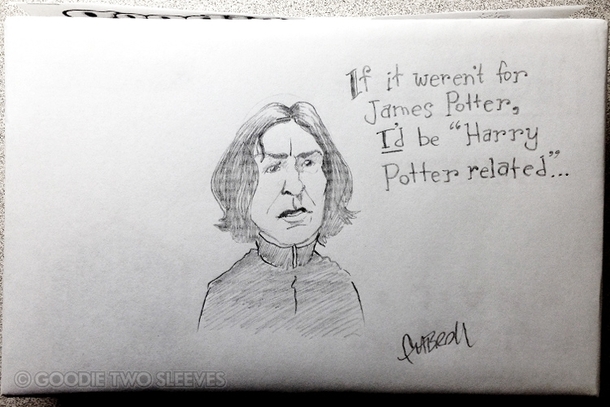 If it weren't for
James Potter,
I'd be "Harry
Potter related"...
© GOODIE TWO SLEEVES